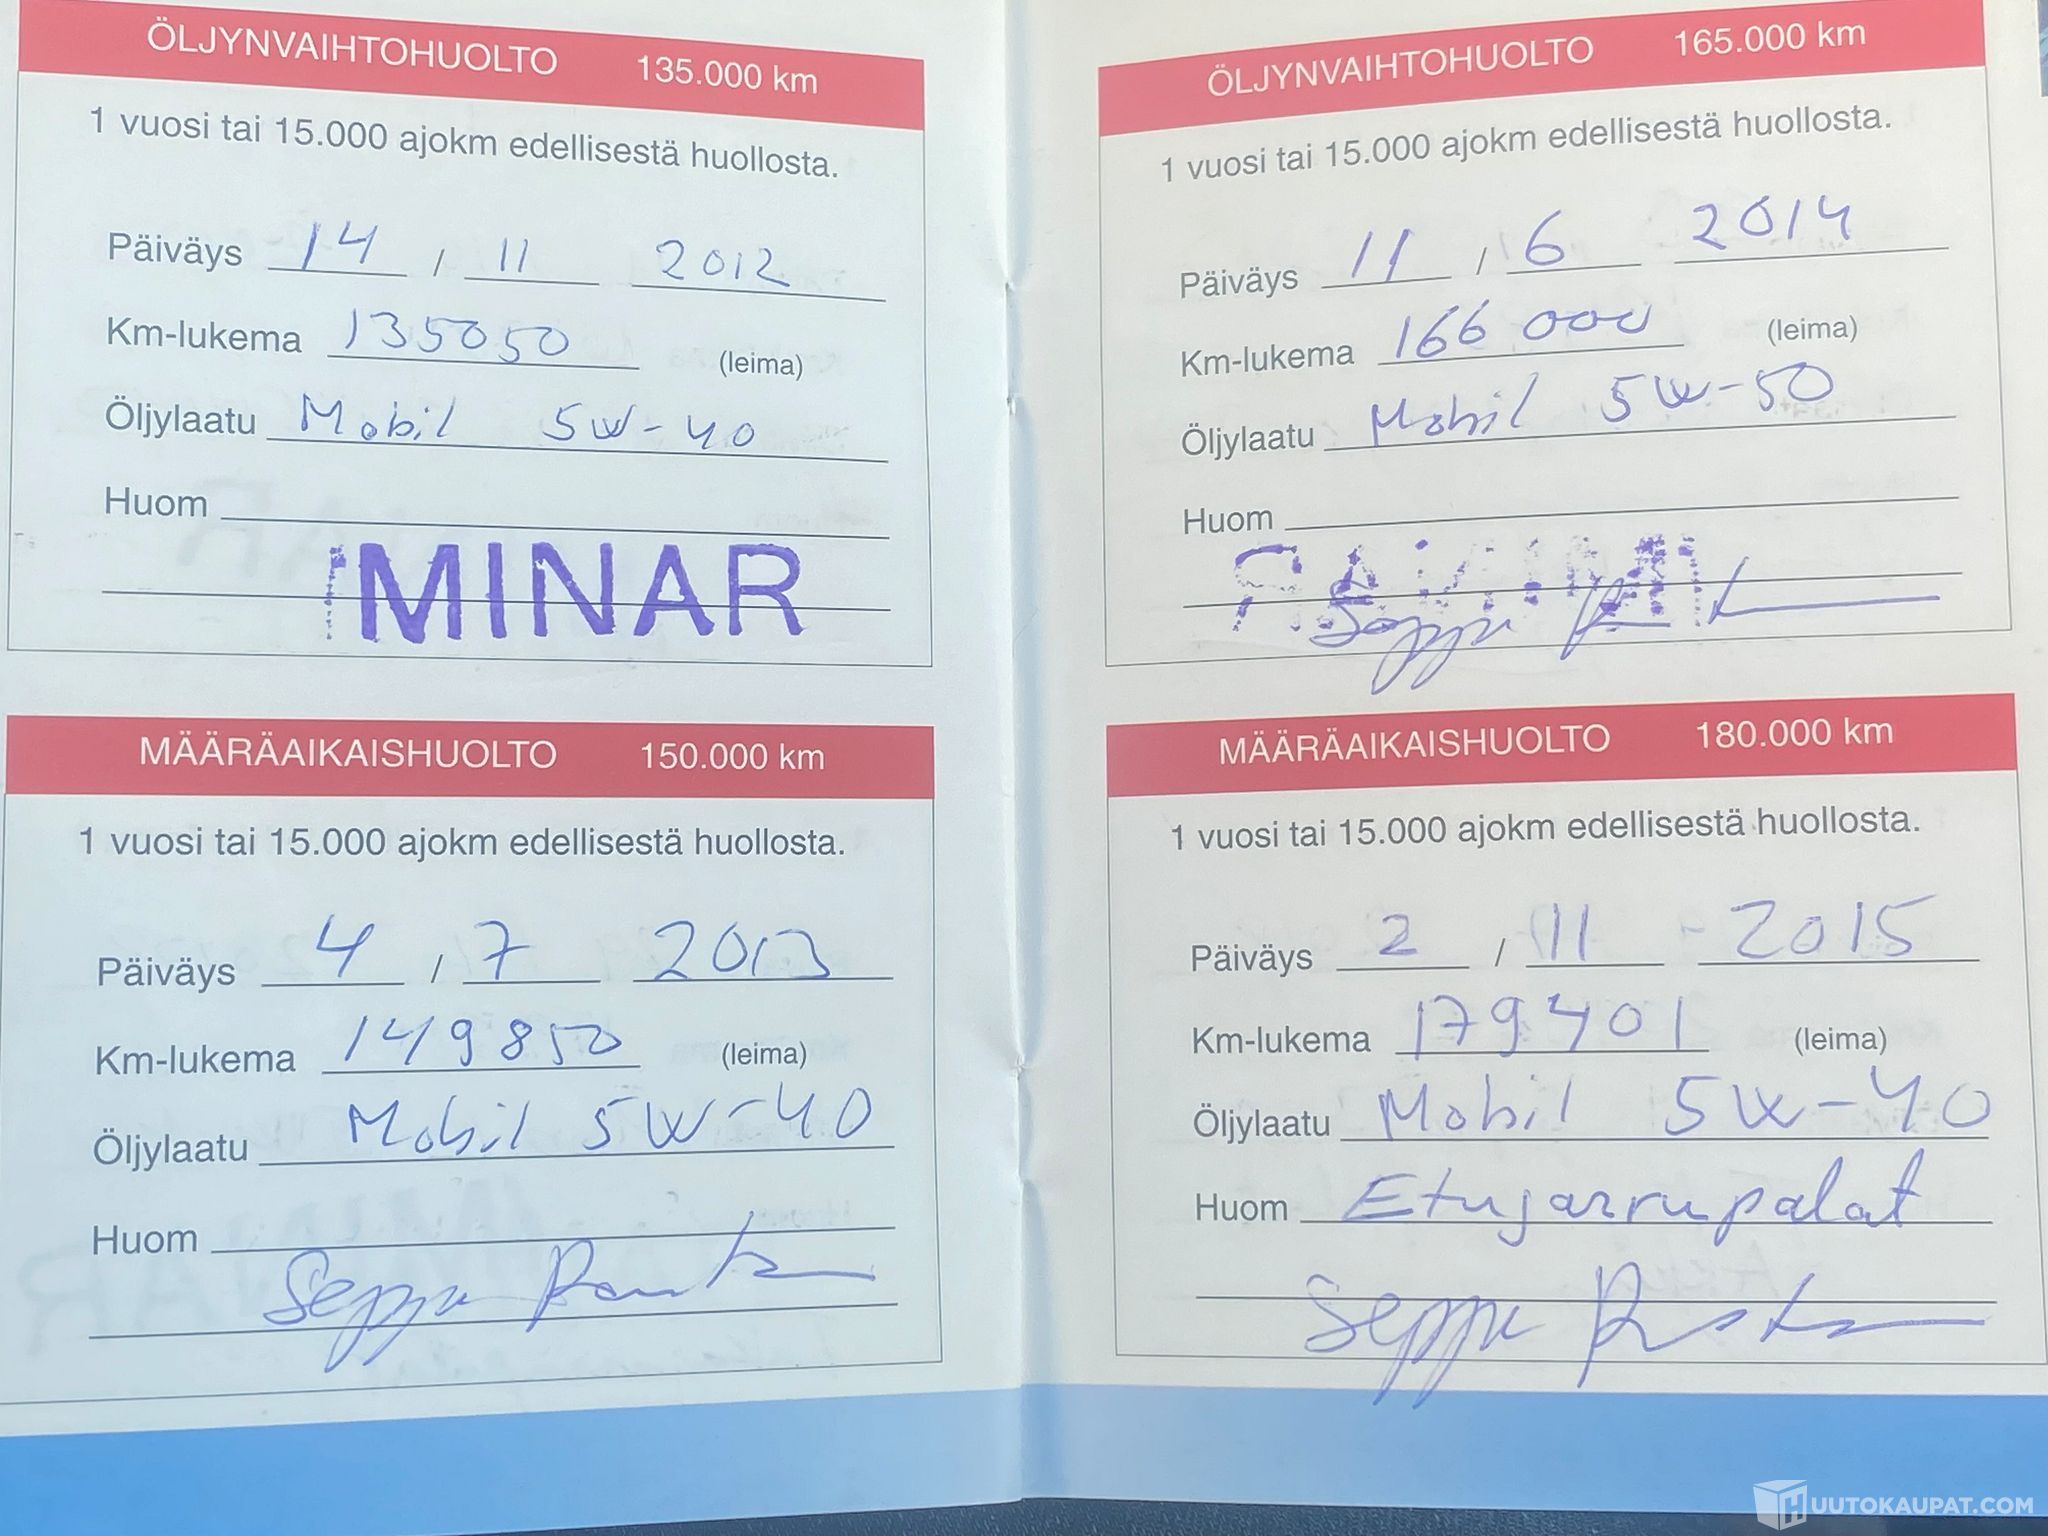 ÖLJYNVAIHTOHUOLTO 135.000 km
1 vuosi tai 15.000 ajokm edellisestä huollosta.
Päiväys 14 / 11 2012
Km-lukema 135050 (leima)
Öljylaatu Mobil 5W-40
Huom
MINAR
MÄÄRÄAIKAISHUOLTO 150.000 km
1 vuosi tai 15.000 ajokm edellisestä huollosta.
Päiväys 4 / 7 2013
Km-lukema 149850 (leima)
Öljylaatu Mobil 5W-40
Huom
Seppo
ÖLJYNVAIHTOHUOLTO 165.000 km
1 vuosi tai 15.000 ajokm edellisestä huollosta.
Päiväys 11 / 6 2014
Km-lukema 166000 (leima)
Öljylaatu Mobil 5W-50
Huom
Seppo
MÄÄRÄAIKAISHUOLTO 180.000 km
1 vuosi tai 15.000 ajokm edellisestä huollosta.
Päiväys 2 / 11 - 2015
Km-lukema 179401 (leima)
Öljylaatu Mobil 5W-40
Huom Etujarrupalat
Seppo
HUUTOKAUPAT.COM